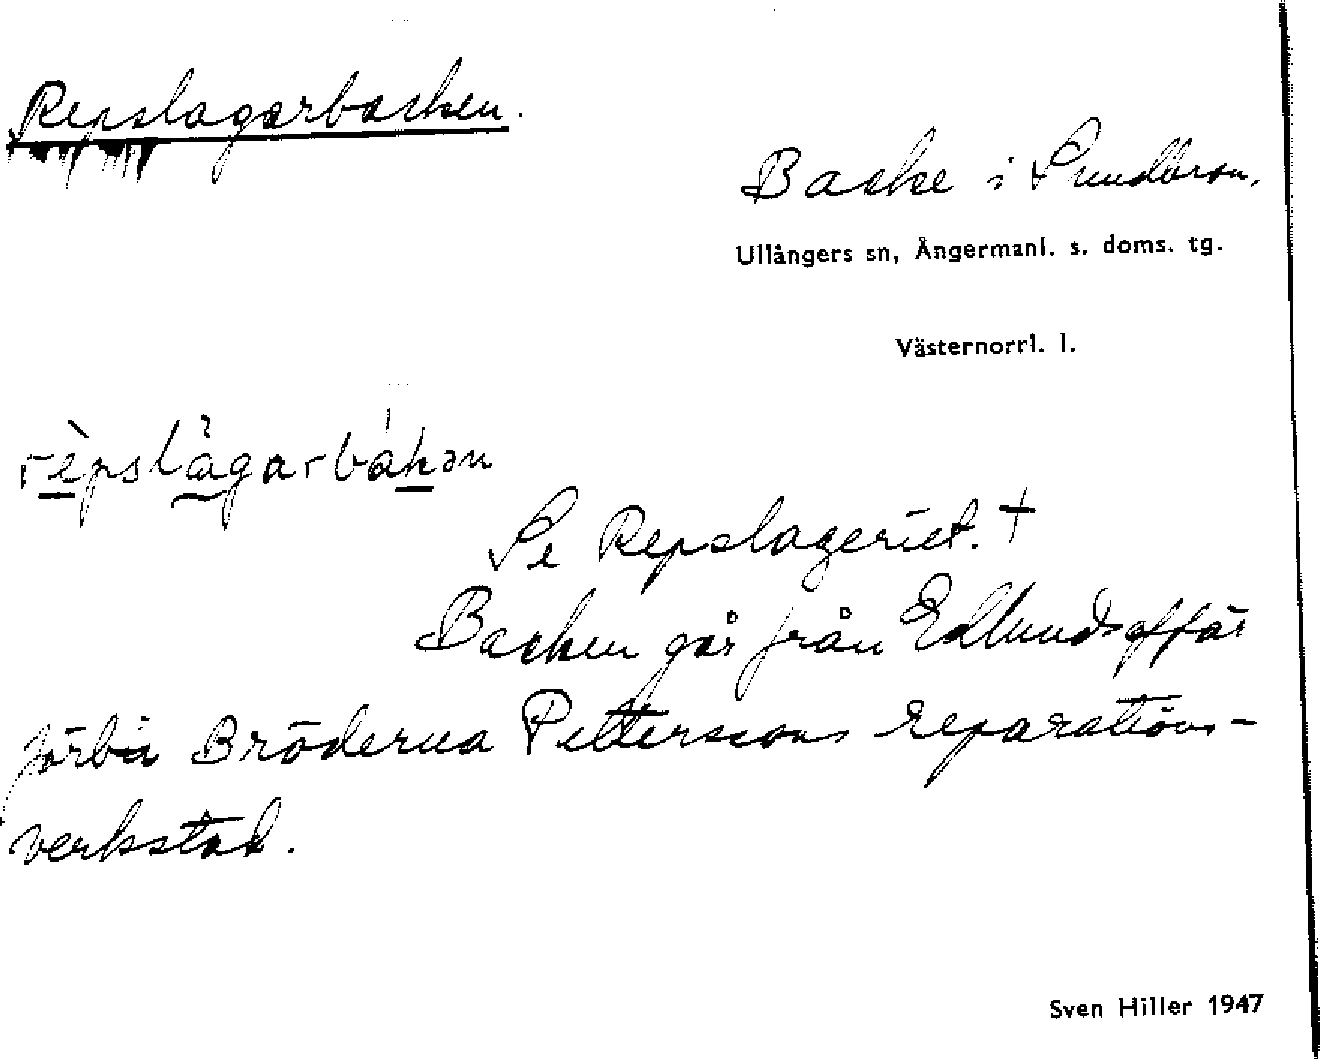 Repslagarbacken.
Backe i Sundbron.
Ullångers sn, Ångermanl. s. doms. tg.
Västernorrl. l.
Se Repslageriet. +
Backen går från Edlunds affär
förbi Bröderna Petterssons reparations-
verkstad.
Sven Hiller 1947